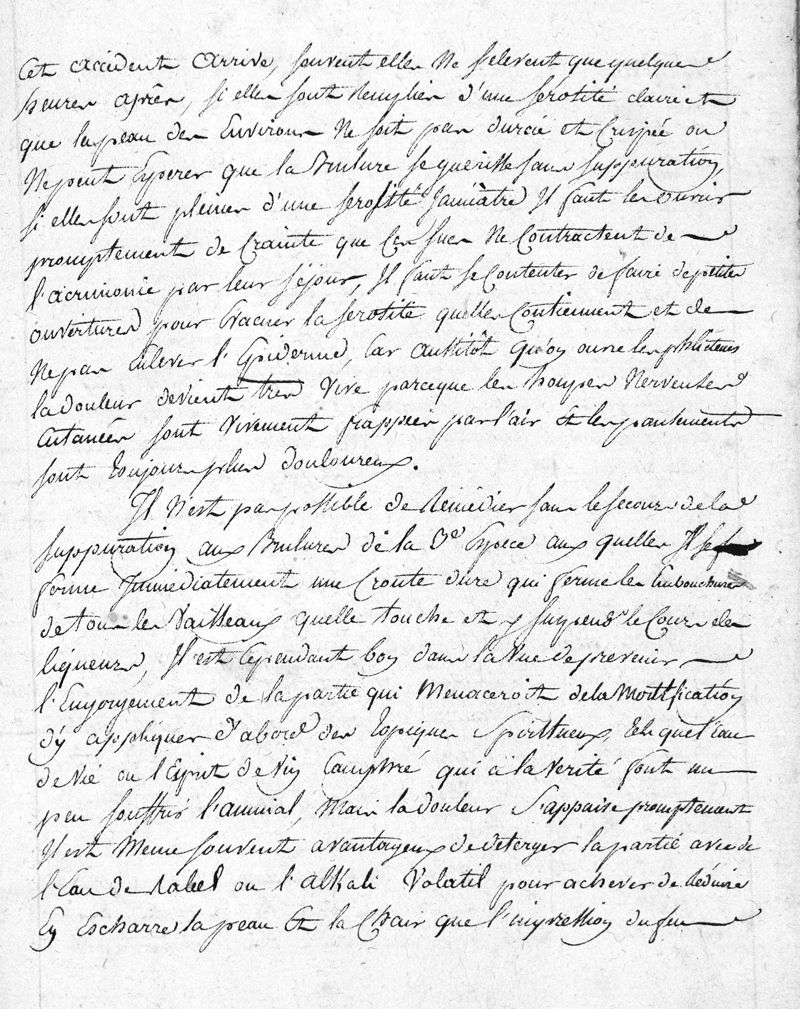 Cet accident arrive, souvent elles ne selevent que quelques
heures après, si elles sont remplies d'une serosité claire et
que la peau des Environs ne soit pas durcie et Crispée on
Ne peut Esperer que la Brulure se guerisse sans Suppuration,
si elles sont pleines d'une serosité Jaunâtre Il faut les ouvrir
promptement de Crainte que Ces sucs Ne Contractent de
l'acrimonie par leur séjour, Il faut se Contenter de faire de petites
ouvertures pour Evacuer la serosité quelles Contiennent et de
Ne pas Enlever l'Epiderme, Car aussitôt qu'on ouvre les phlictenes
la douleur devient tres Vive parceque les houpes Nerveuses
Cutanées sont Vivement frappées par l'air Et les pansements
sont toujours plus douloureux.
Il N'est pas possible de Remédier sans le secours de la
Suppuration aux Brulures de la 3e Espece aux quelles Il se
forme Immédiatement une Croute dure qui ferme les Embouchures
de tous les Vaisseaux quelle touche et y suspend le Cours des
liqueurs, Il est Cependant bon dans la Vue de prevenir
l'Engorgement de la partie qui Menaceroit de la Mortification
d'y appliquer d'abord des Topiques Spiritueux, Tels que l'Eau
de Vie ou l'Esprit de Vin Camphré qui à la Verité font un
peu souffrir l'animal, Mais la douleur S'appaise promptement
Il est Meme souvent avantageux de deterger la partie avec de
l'Eau de Rabel ou l'alkali Volatil pour achever de Réduire
En Escharre la peau Et la Chair que l'impression du feu